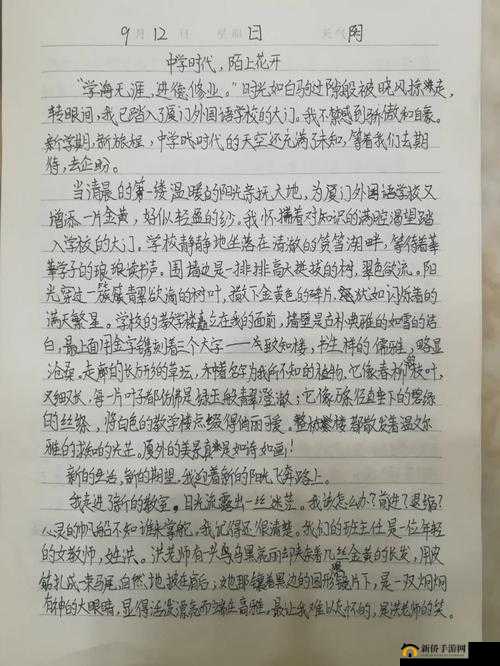 9月12日 星期日 天气阴
中学时代，陌上花开
"学海无涯，进德修业。"时光如白驹过隙般被晚风掠走，
转眼间，我已踏入了厦门外国语学校的大门。我不禁感到骄傲和自豪。
新学期，新旅途，中学时代的天空还充满了未知，等着我们去期
待，去企盼。
当清晨的第一缕温暖的阳光亲抚大地，为厦门外国语学校又
增添一片金黄，好似轻盈的纱。我怀揣着对知识的满腔渴望踏
入学校的大门，学校静静地坐落在清澈的筼筜湖畔，等待着莘
莘学子的琅琅读书声。围墙边是一排排高大挺拔的树，翠色欲流。阳
光穿过一簇簇青翠欲滴的树叶，撒下金黄色的碎片，犹如闪烁着的
满天繁星。学校的教学楼矗立在我的面前，墙壁是古朴典雅的如雪的洁
白，最上面用金字镌刻着三个大字——致知楼，书生样的儒雅，略显
沧桑。走廊的长方形的草坛，种着名字为我所不知的植物，它像春柳的枝叶，
又细又长，每一片叶子都仿佛是绿玉般青翠澄澈，它像瀑布径直垂下的墨绿
的丝绦，将白色的教学楼点缀得俏丽可爱。整栋楼都散发着温文尔
雅的求知的光芒。厦外的美景真是如诗如画！
新的生活，新的期望，我迎着新的阳光飞奔路上。
我走进了新的教室。目光流露出一丝迷茫。我该怎么办？前进？退缩？
心灵的帆船不知谁来掌舵。我记得还很清楚。我们的班主任是一位年轻
的女教师，姓洪。洪老师有一头乌黑亮丽却夹杂着几丝金黄的长发，用皮
筋扎成一束马尾，自然地披在肩后；她那镶着黑边的圆形镜片下，是一双炯炯
有神的大眼睛，显得活泼漂亮而端庄高雅，最让我难以忘怀的，是洪老师的笑。
新侨手游网